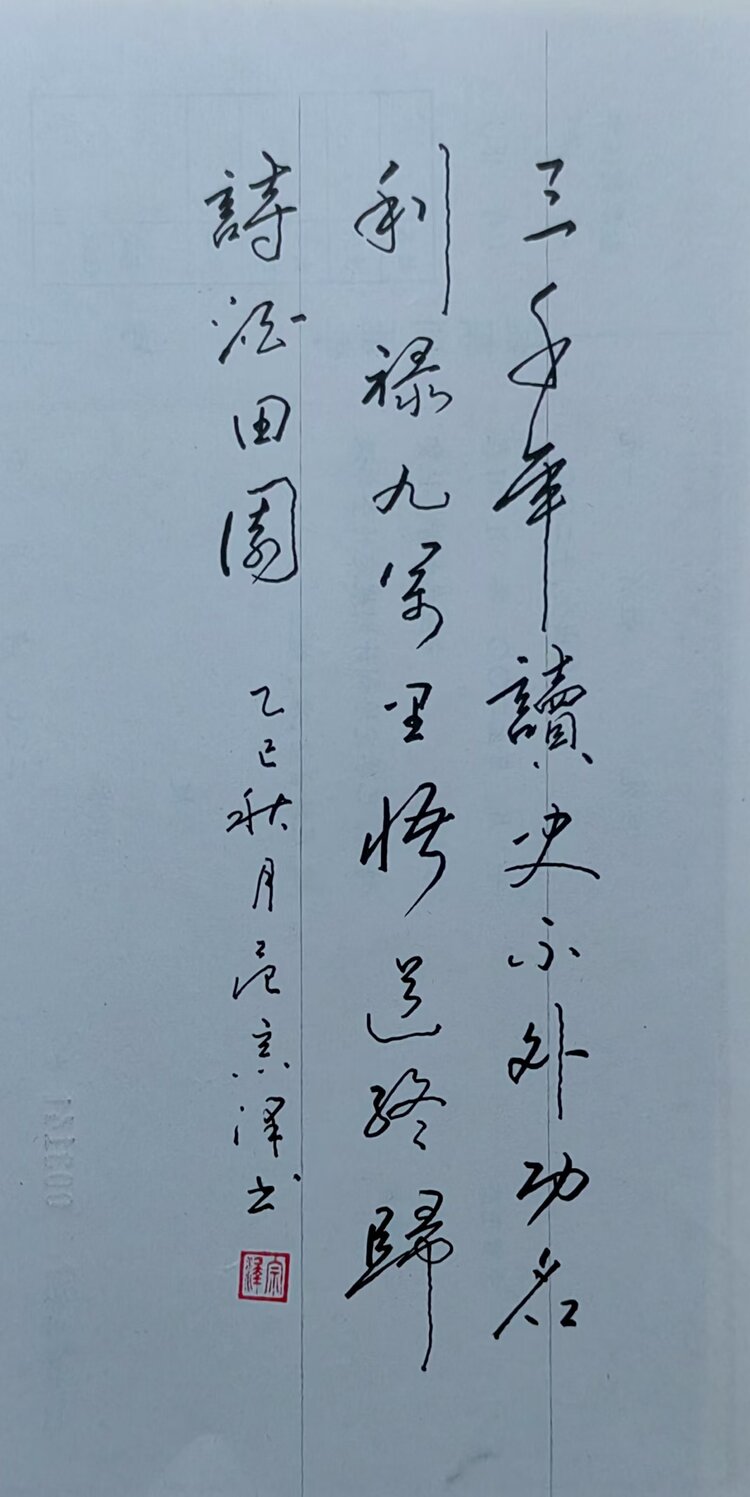 三千年讀史不外功名
利祿九萬里悟道終歸
詩酒田園
乙巳秋月范宗澤書
宗澤